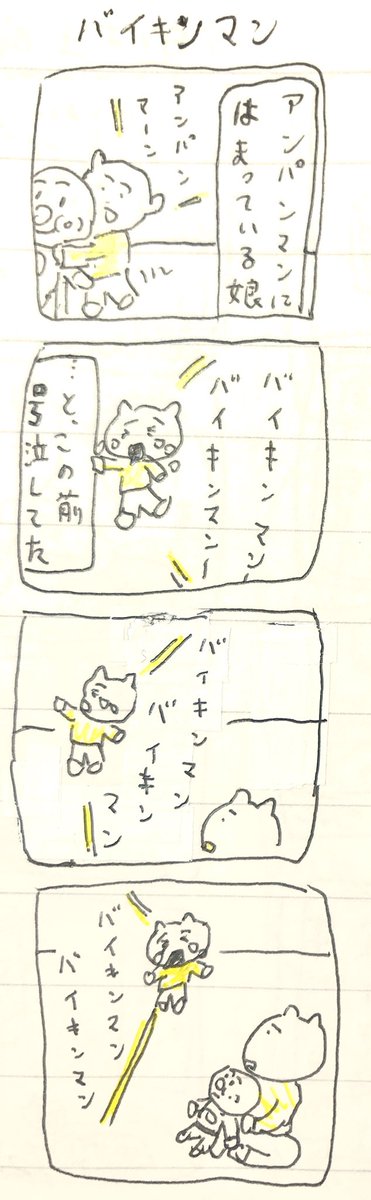 バイキンマン
アンパンマンに
はまっている娘
アンパン
マーン
バイキンマン
バイキンマンー
…と、この前
号泣してた
バイキンマン
バイキン
マン
バイキンマン
バイキンマン